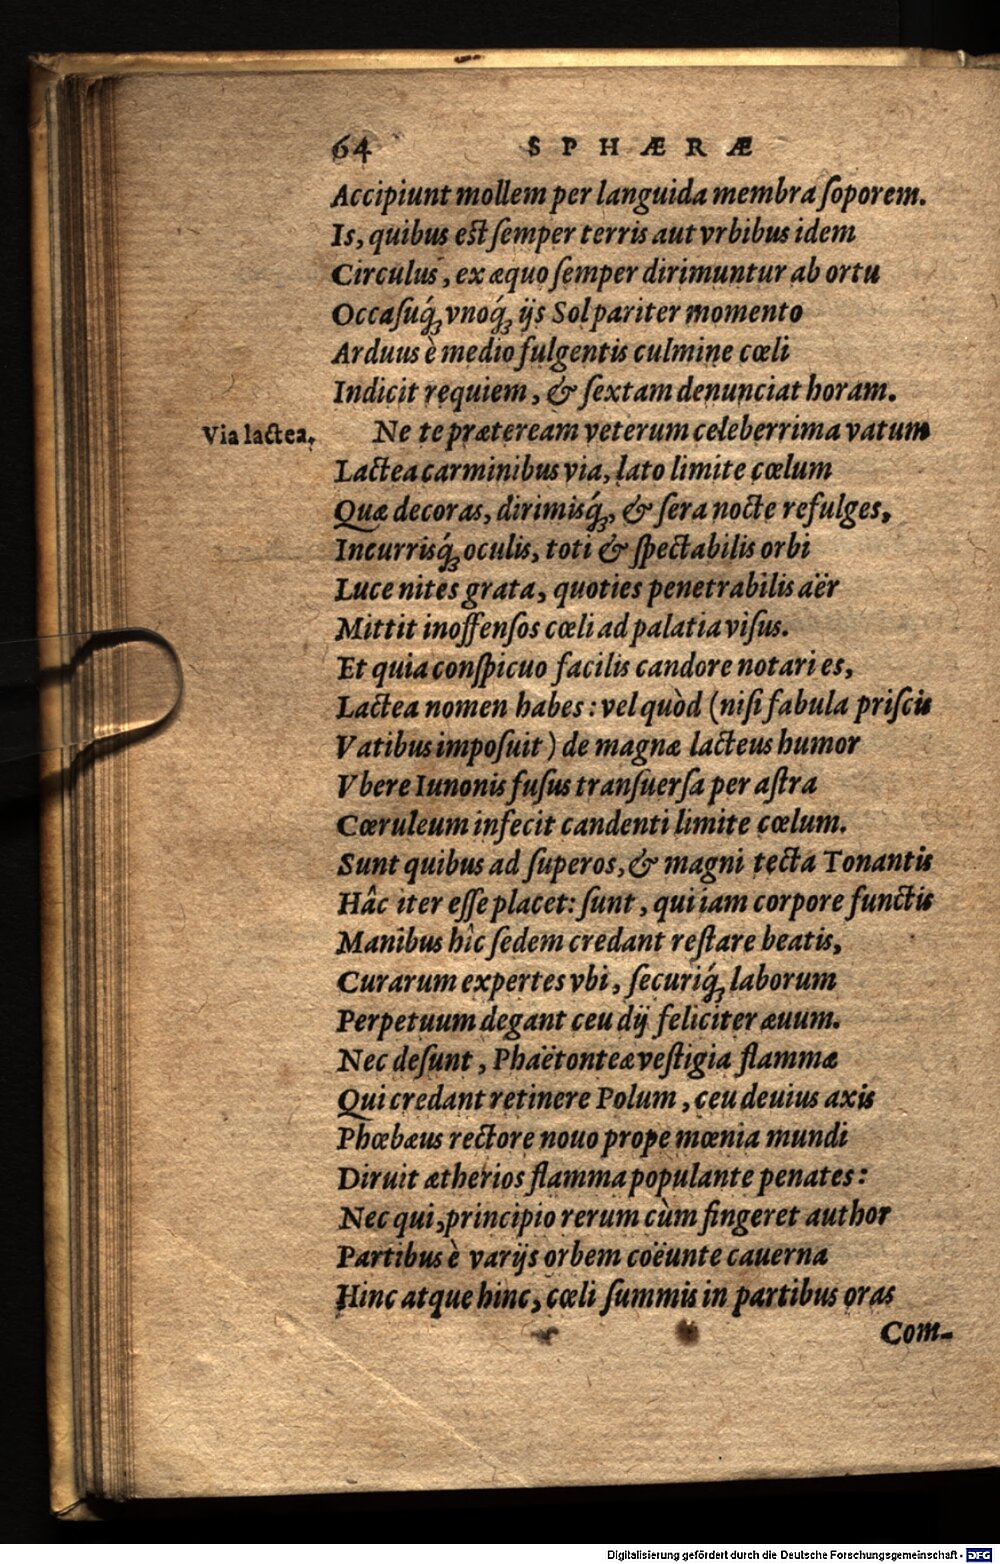 64 SPHÆRÆ
Accipiunt mollem per languida membra ſoporem.
Is, quibus eſt ſemper terris aut vrbibus idem
Circulus, ex æquo ſemper dirimuntur ab ortu
Occaſuq́ꝫ vnoq́ꝫ ijs Sol pariter momento
Arduus è medio fulgentis culmine cœli
Indicit requiem, & ſextam denunciat horam.
Via lactea. Ne te præteream veterum celeberrima vatum
Lactea carminibus via, lato limite cœlum
Quæ decoras, dirimisq́ꝫ, & ſera nocte refulges,
Incurrisq́ꝫ oculis, toti & ſpectabilis orbi
Luce nites grata, quoties penetrabilis aër
Mittit inoffenſos cœli ad palatia viſus.
Et quia conſpicuo facilis candore notari es,
Lactea nomen habes: vel quòd (niſi fabula priſcis
Vatibus impoſuit) de magnæ lacteus humor
Vbere Iunonis fuſus tranſuerſa per aſtra
Cœruleum infecit candenti limite cœlum.
Sunt quibus ad ſuperos, & magni tecta Tonantis
Hâc iter eſſe placet: ſunt, qui iam corpore functis
Manibus hîc ſedem credant reſtare beatis,
Curarum expertes vbi, ſecuriq́ꝫ laborum
Perpetuum degant ceu dij feliciter æuum.
Nec deſunt, Phaëtonteæ veſtigia flammæ
Qui credant retinere Polum, ceu deuius axis
Phœbæus rectore nouo prope mœnia mundi
Diruit ætherios flamma populante penates:
Nec qui, principio rerum cùm fingeret author
Partibus è varijs orbem coëunte cauerna
Hinc atque hinc, cœli ſummis in partibus oras
Com-
Digitalisierung gefördert durch die Deutsche Forschungsgemeinschaft - DFG